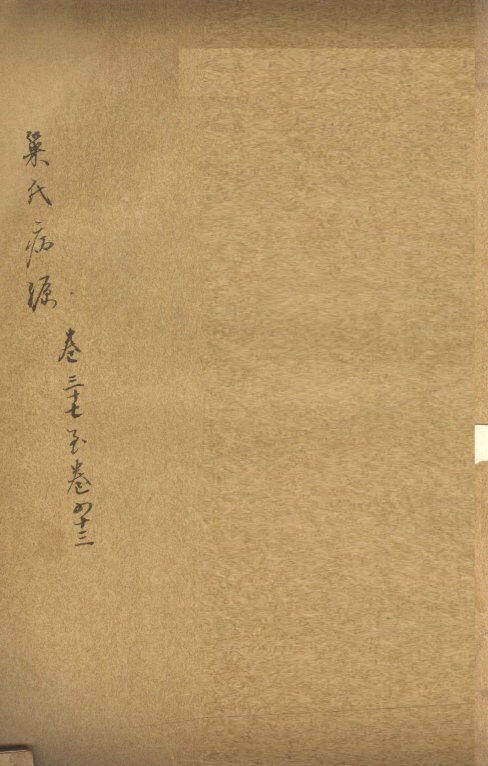 巢氏病源
卷三十七至卷四十三